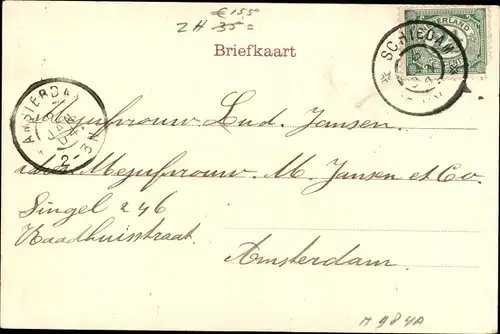 € 15.50
ZH 35=
Briefkaart
NEDERLAND
SCHIEDAM
AMSTERDAM
Mejufvrouw Lud. Jansen,
adres Mejufvrouw. M. Jansen et Co.
Singel 246
Raadhuisstraat.
Amsterdam.
M 984A